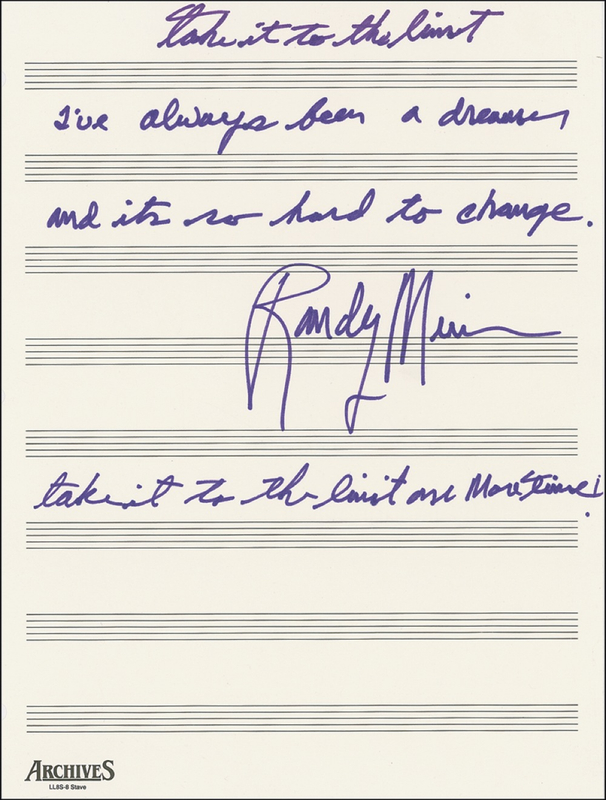 take it to the limit
I've always been a dreamer
and its so hard to change.
Randy Meisner
take it to the limit one More time!
ARCHIVES
LL8S-8 Stave